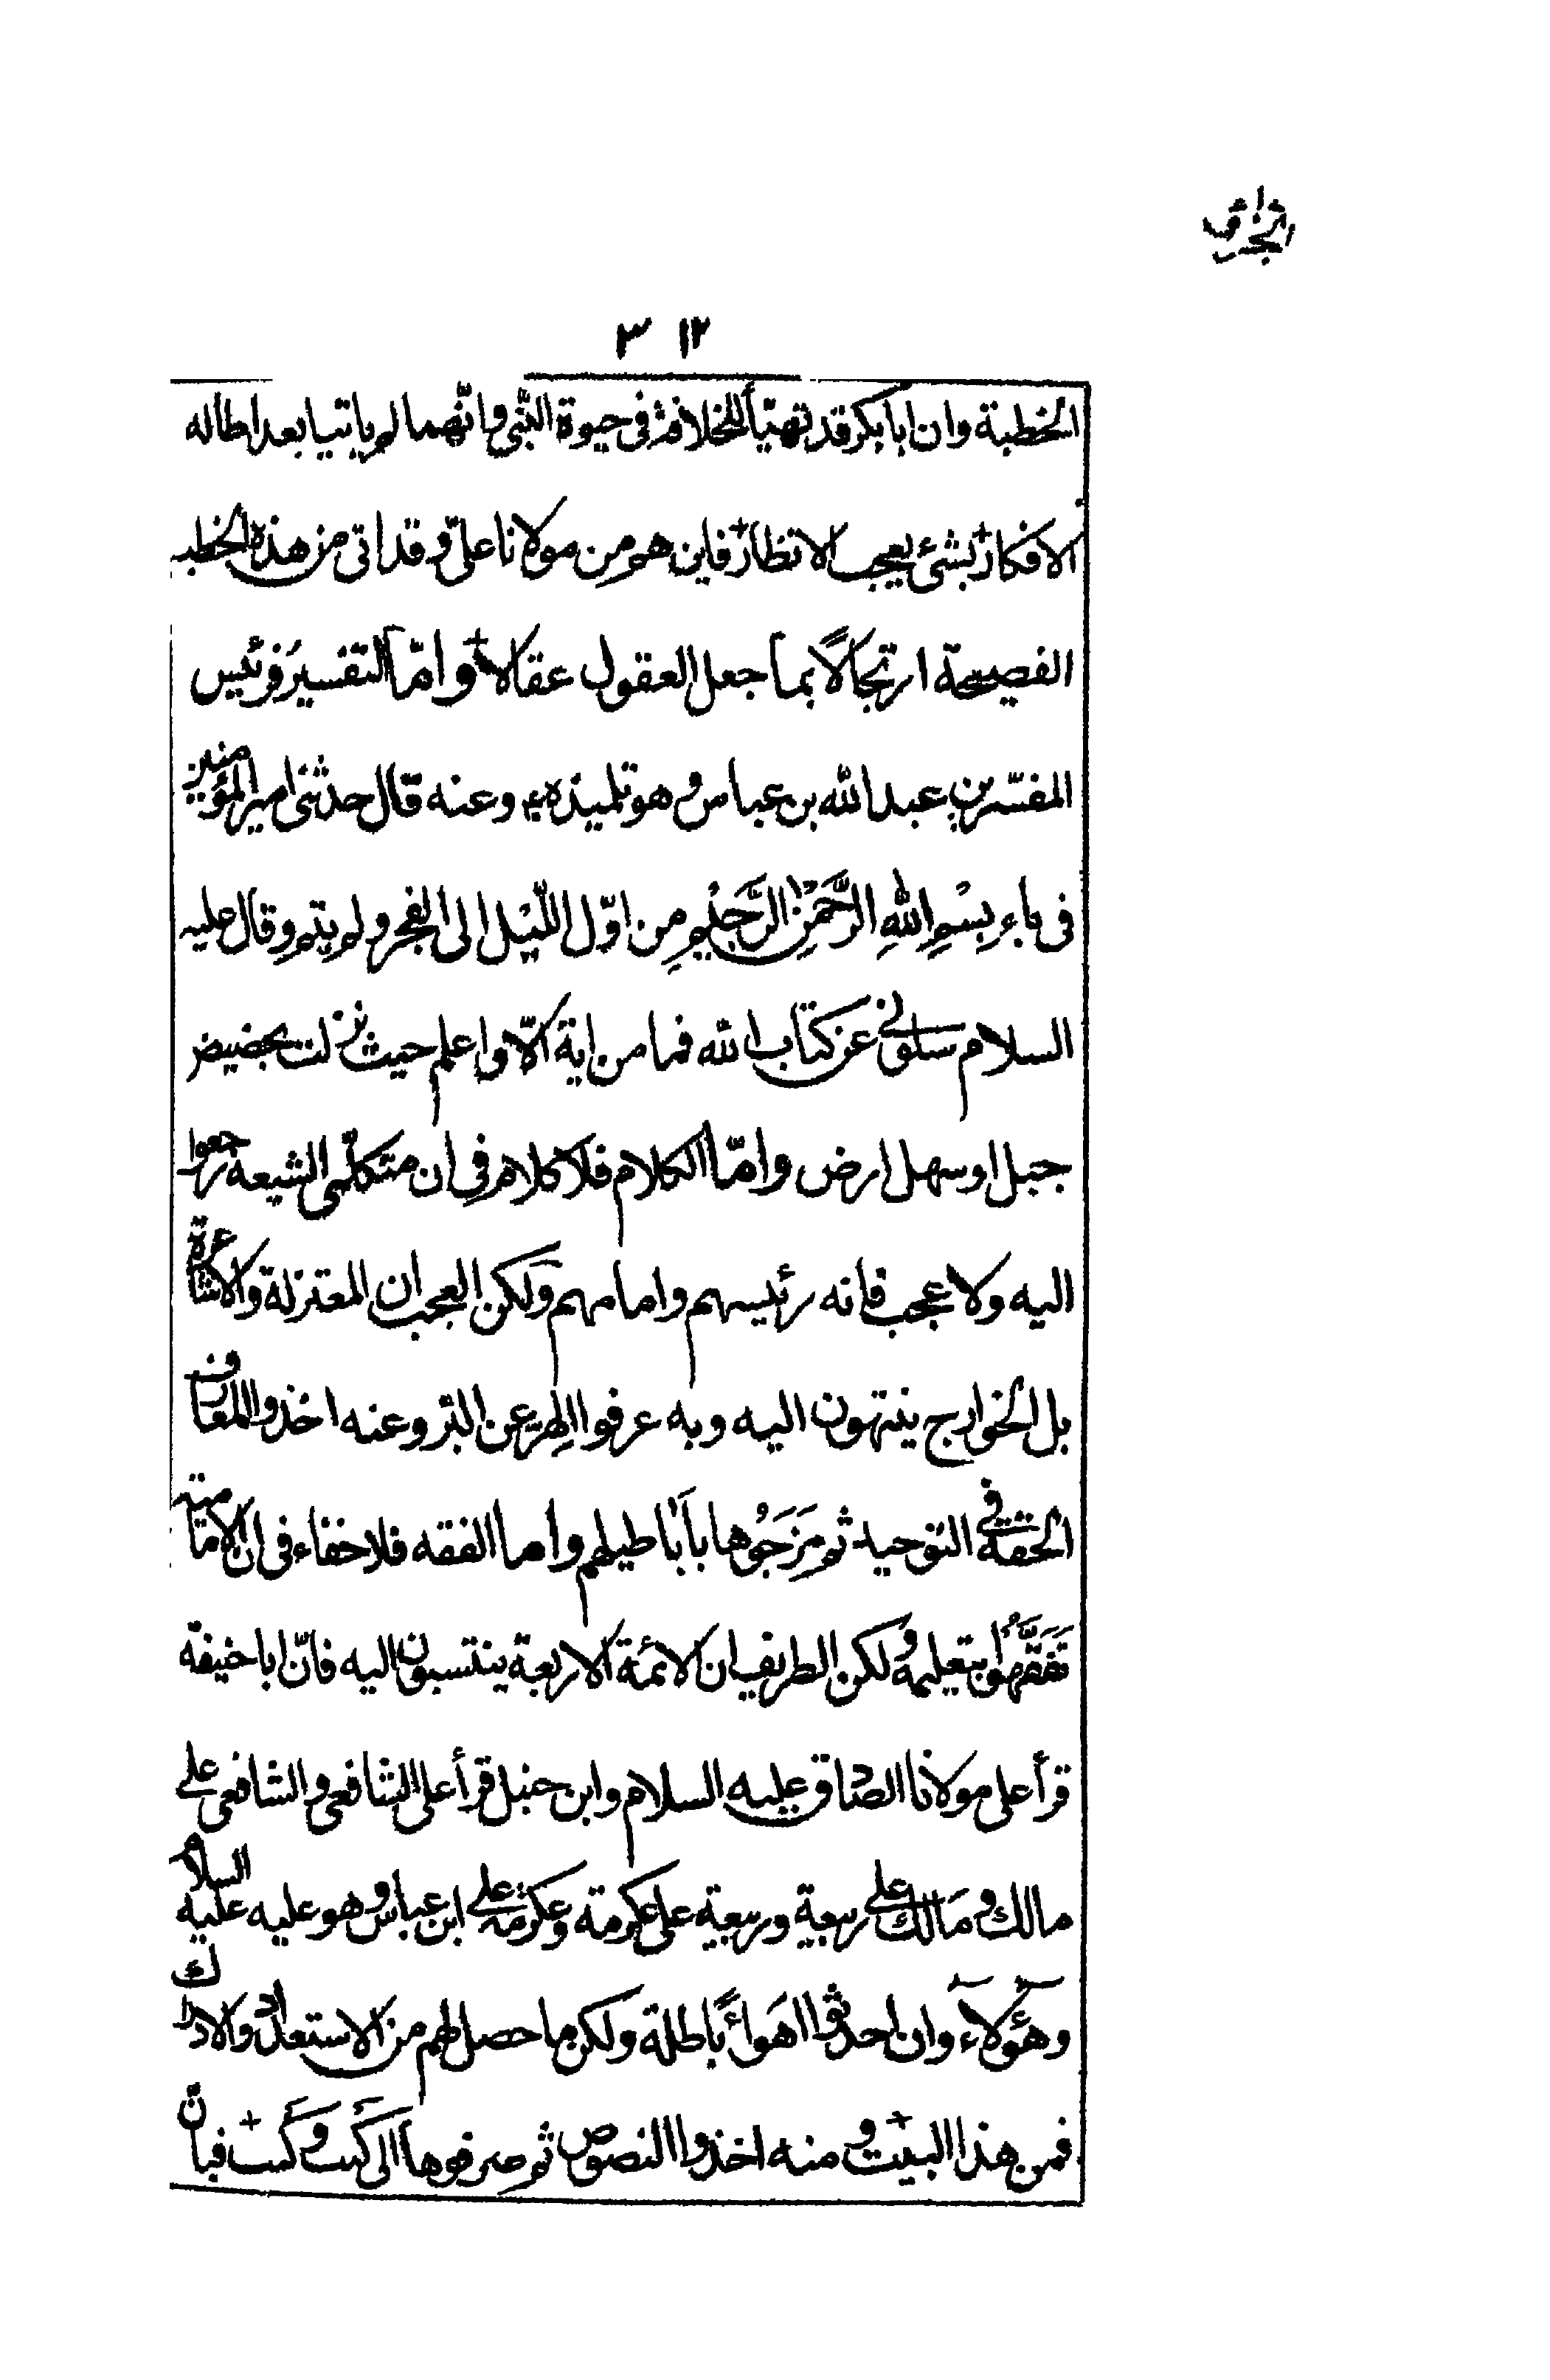 ١٢ ٣
الخطبة وان ابا بكر قد تهيّأ للخلافة فى حيوة النّبى وانّهما لم ياتيا بعد اطاله
الافكار بشئ يعجب الانظار فاين هم من مولانا علىّ و قد اتى من هذه الخطبه
الفصيحة ارتجالًا بما جعل العقول عقالا وامّا التفسير فرئيس
المفسّرين عبد الله بن عباس و هو تلميذه وعنه قال حدثنى امير المؤمنين
فى باء بسْمِ اللهِ الرَّحْمٰنِ الرَّحِيْمِ من اوّل اللّيْل الى الفجر و لم يتم وقال عليه
السلام سلونى عن كتاب الله فما من اية الّا وا علم حيث نزلت بحضيض
جبل او سهل ارض وامّا الكلام فلا كلام فى ان متكلّمى الشيعة رجعوا
اليه ولا عجب فانه رئيسهم وامامهم ولكن العجب ان المعتزلة والاشاعرة
بل الخوارج ينتهون اليه وبه عرفوا الهرّ عن البر وعنه اخذوا المعارف
الحقة فى التوحيد ثم مَزَجُوها باَباطيلهم واما الفقه فلا خفاء فى ان الامامية
تَفَقَّهُوا بتعليمه ولكن الطريف ان الائمة الاربعة ينتسبون اليه فانّ ابا حنيفة
قرأ على مولانا الصادق عليه السلام وابن حنبل قرأ على الشافعى والشافعى على
مالك و مَالك على ربيعة وربيعة على عكرمة وعكرمة على ابن عباس وهو عليه عليه السلام
وهؤلاء وان احدثوا اهواءً باطلة ولكن ما حصل لهم من الاستعداد والادراك
فمن هذا البيت و منه اخذوا النصوص ثم صرفوها الى كَيت و كَيت فبان